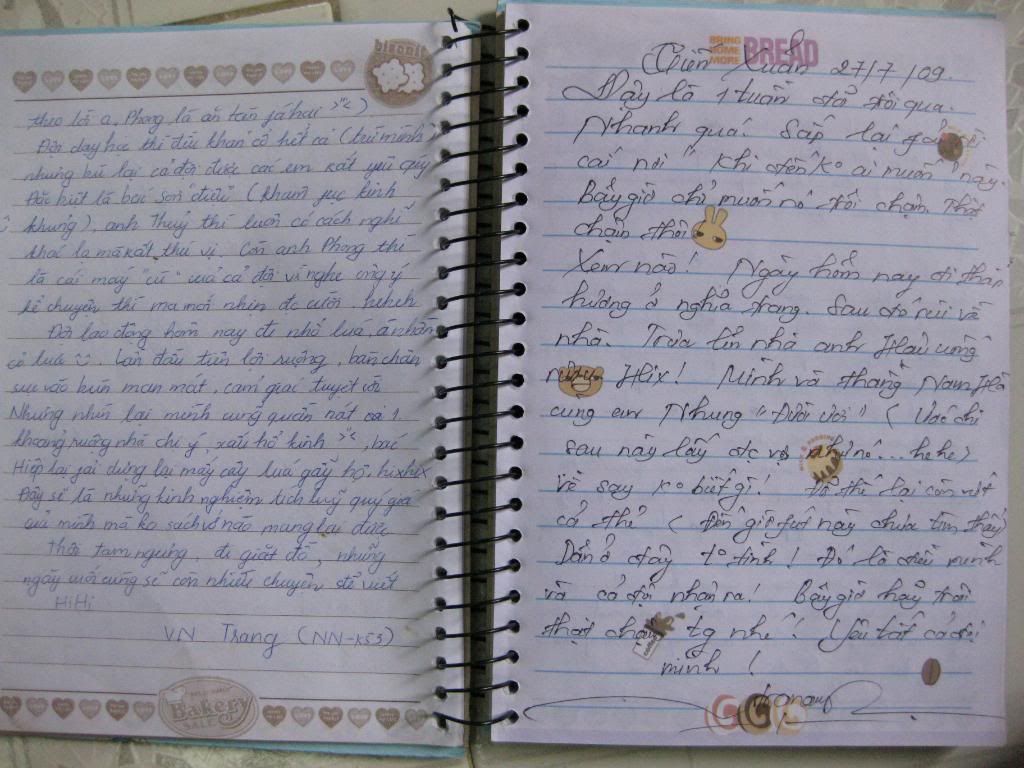 biscuit
theo lời a. Phong là ăn tàn phá hại >"<)
Đội dạy học thì đều khan cổ hết cả (trừ mình)
nhưng bù lại cả đội được các em rất yêu quý
Đặc biệt là bác Sơn điếu (khâm phục kinh
khủng), anh Thuỷ thì luôn có cách nghĩ
khác lạ mà rất thú vị. Còn anh Phong thì
là cái máy "cũ" của cả đội vì nghe ông ý
kể chuyện thì ma mới nhịn đc cười, heheh
Đội lao động hôm nay đi nhổ lúa,
cỏ lúa Lần đầu tiên lội ruộng, bàn chân
sục vào bùn man mát, cảm giác tuyệt vời
Nhưng nhìn lại mình cũng quần nát cả 1
khoảng ruộng nhà chị ý, xấu hổ kinh >"<, bác
Hiệp lại phải dựng lại mấy cây lúa gãy hộ, hixhix
Đây sẽ là những kinh nghiệm tích luỹ quý giá
của mình mà ko sách vở nào mang lại được
Thôi tạm ngưng, đi giặt đồ, những
ngày cuối cùng sẽ còn nhiều chuyện để viết
HiHi
VN Trang (NN-K53)
Bakery
BRING HOME MORE BREAD
Tiến Xuân 27/7/09.
Vậy là 1 tuần đã trôi qua.
Nhanh quá! Sắp lại gần
cái nơi "khi đến ko ai muốn" này.
Bây giờ chỉ muốn nó trôi chậm. Thật
chậm thôi
Xem nào! Ngày hôm nay đi thắp
hương ở nghĩa trang. Sau đó rồi về
nhà. Trưa lên nhà anh Hậu uống
rượu Hix! Mình và thằng Nam
cùng em Nhung "Đười ươi" (Ước chi
sau này lấy đc vợ như nó... hehe)
về say ko biết gì! Đã thế lại còn mất
cả thẻ (Đến giờ phút này chưa tìm thấy)
Dân ở đây to tình! Đó là điều mình
và cả đội nhận ra! Bây giờ hãy trôi
thật chậm tg nhé! Yêu tất cả đội
mình!